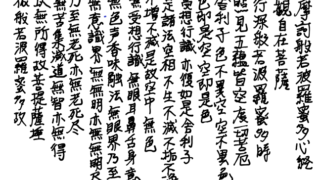 摩訶般若波羅蜜多心経
観自在菩薩
行深般若波羅蜜多時
照見五蘊皆空度一切苦厄
舎利子色不異空空不異色
色即是空空即是色
受想行識亦復如是舎利子
是諸法空相不生不滅不垢不
不増不減是故空中無色
無受想行識無眼耳鼻舌身意
無色声香味触法無眼界乃至
無意識界無無明亦無無明尽
乃至無老死亦無老死尽
無苦集滅道無智亦無得
以無所得故菩提薩埵
依般若波羅蜜多故